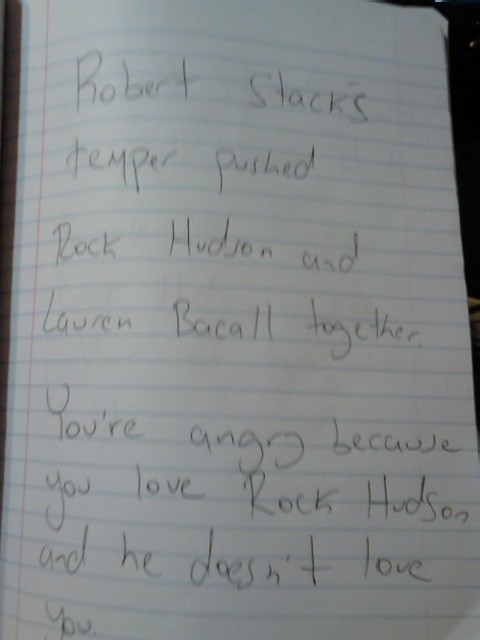 Robert Stack's
temper pushed
Rock Hudson and
Lauren Bacall together.
You're angry because
you love Rock Hudson
and he doesn't love
you.